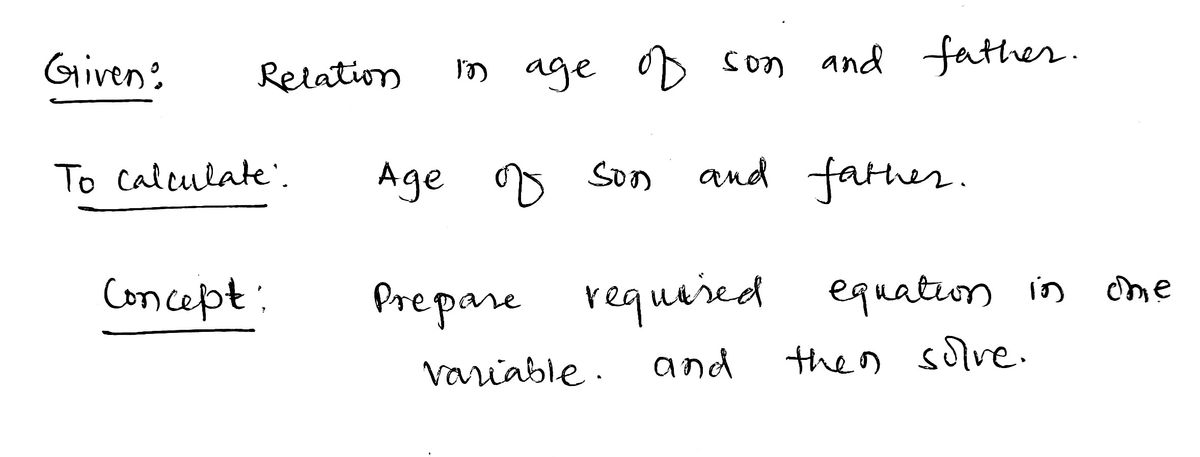 Given: Relation in age of son and father.
To calculate: Age of son and father.
Concept: Prepare required equation in one
variable. and then solve.